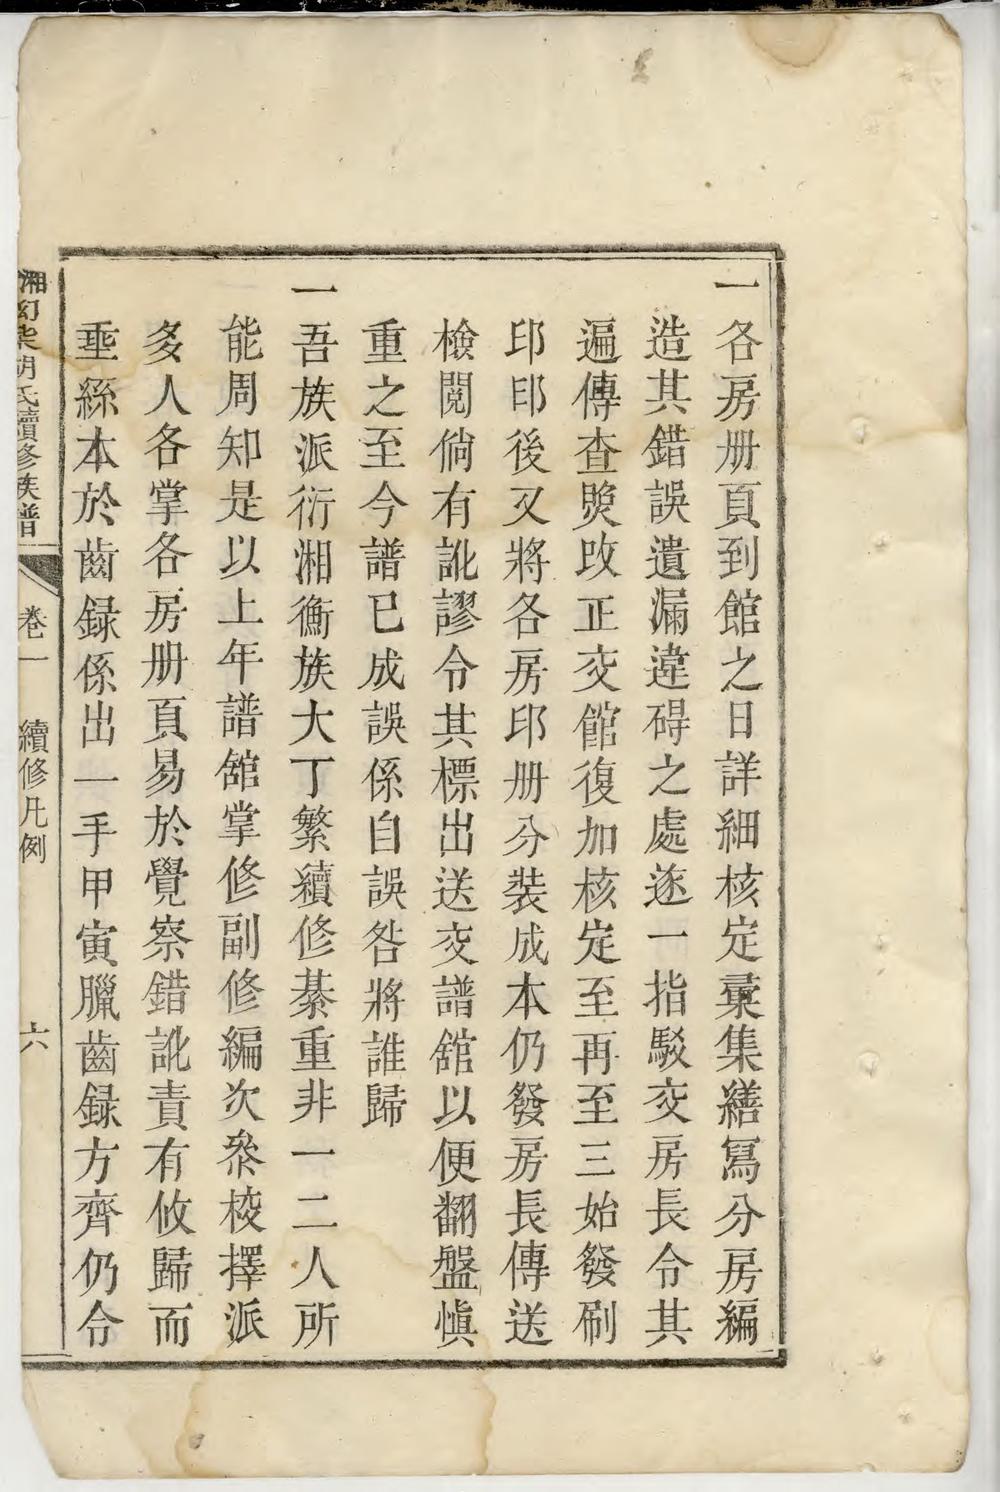 一各房册頁到館之日詳細核定彙集繕寫分房編
造其錯誤遺漏違碍之處逐一指駁交房長令其
遍傳查閱改正交館復加核定至再至三始發刷
印印後又將各房印册分裝成本仍發房長傳送
檢閱倘有訛謬令其標出送交譜舘以便翻盤愼
重之至今譜已成誤係自誤咎將誰歸
一吾族派衍湘衡族大丁繁續修綦重非一二人所
能周知是以上年譜舘掌修副修編次叅校擇派
多人各掌各房册頁易於覺察錯訛責有攸歸而
埀絲本於齒録係出一手甲寅臘齒録方齊仍令
湘幻柒胡氏續修族譜
卷一
續修凡例
六